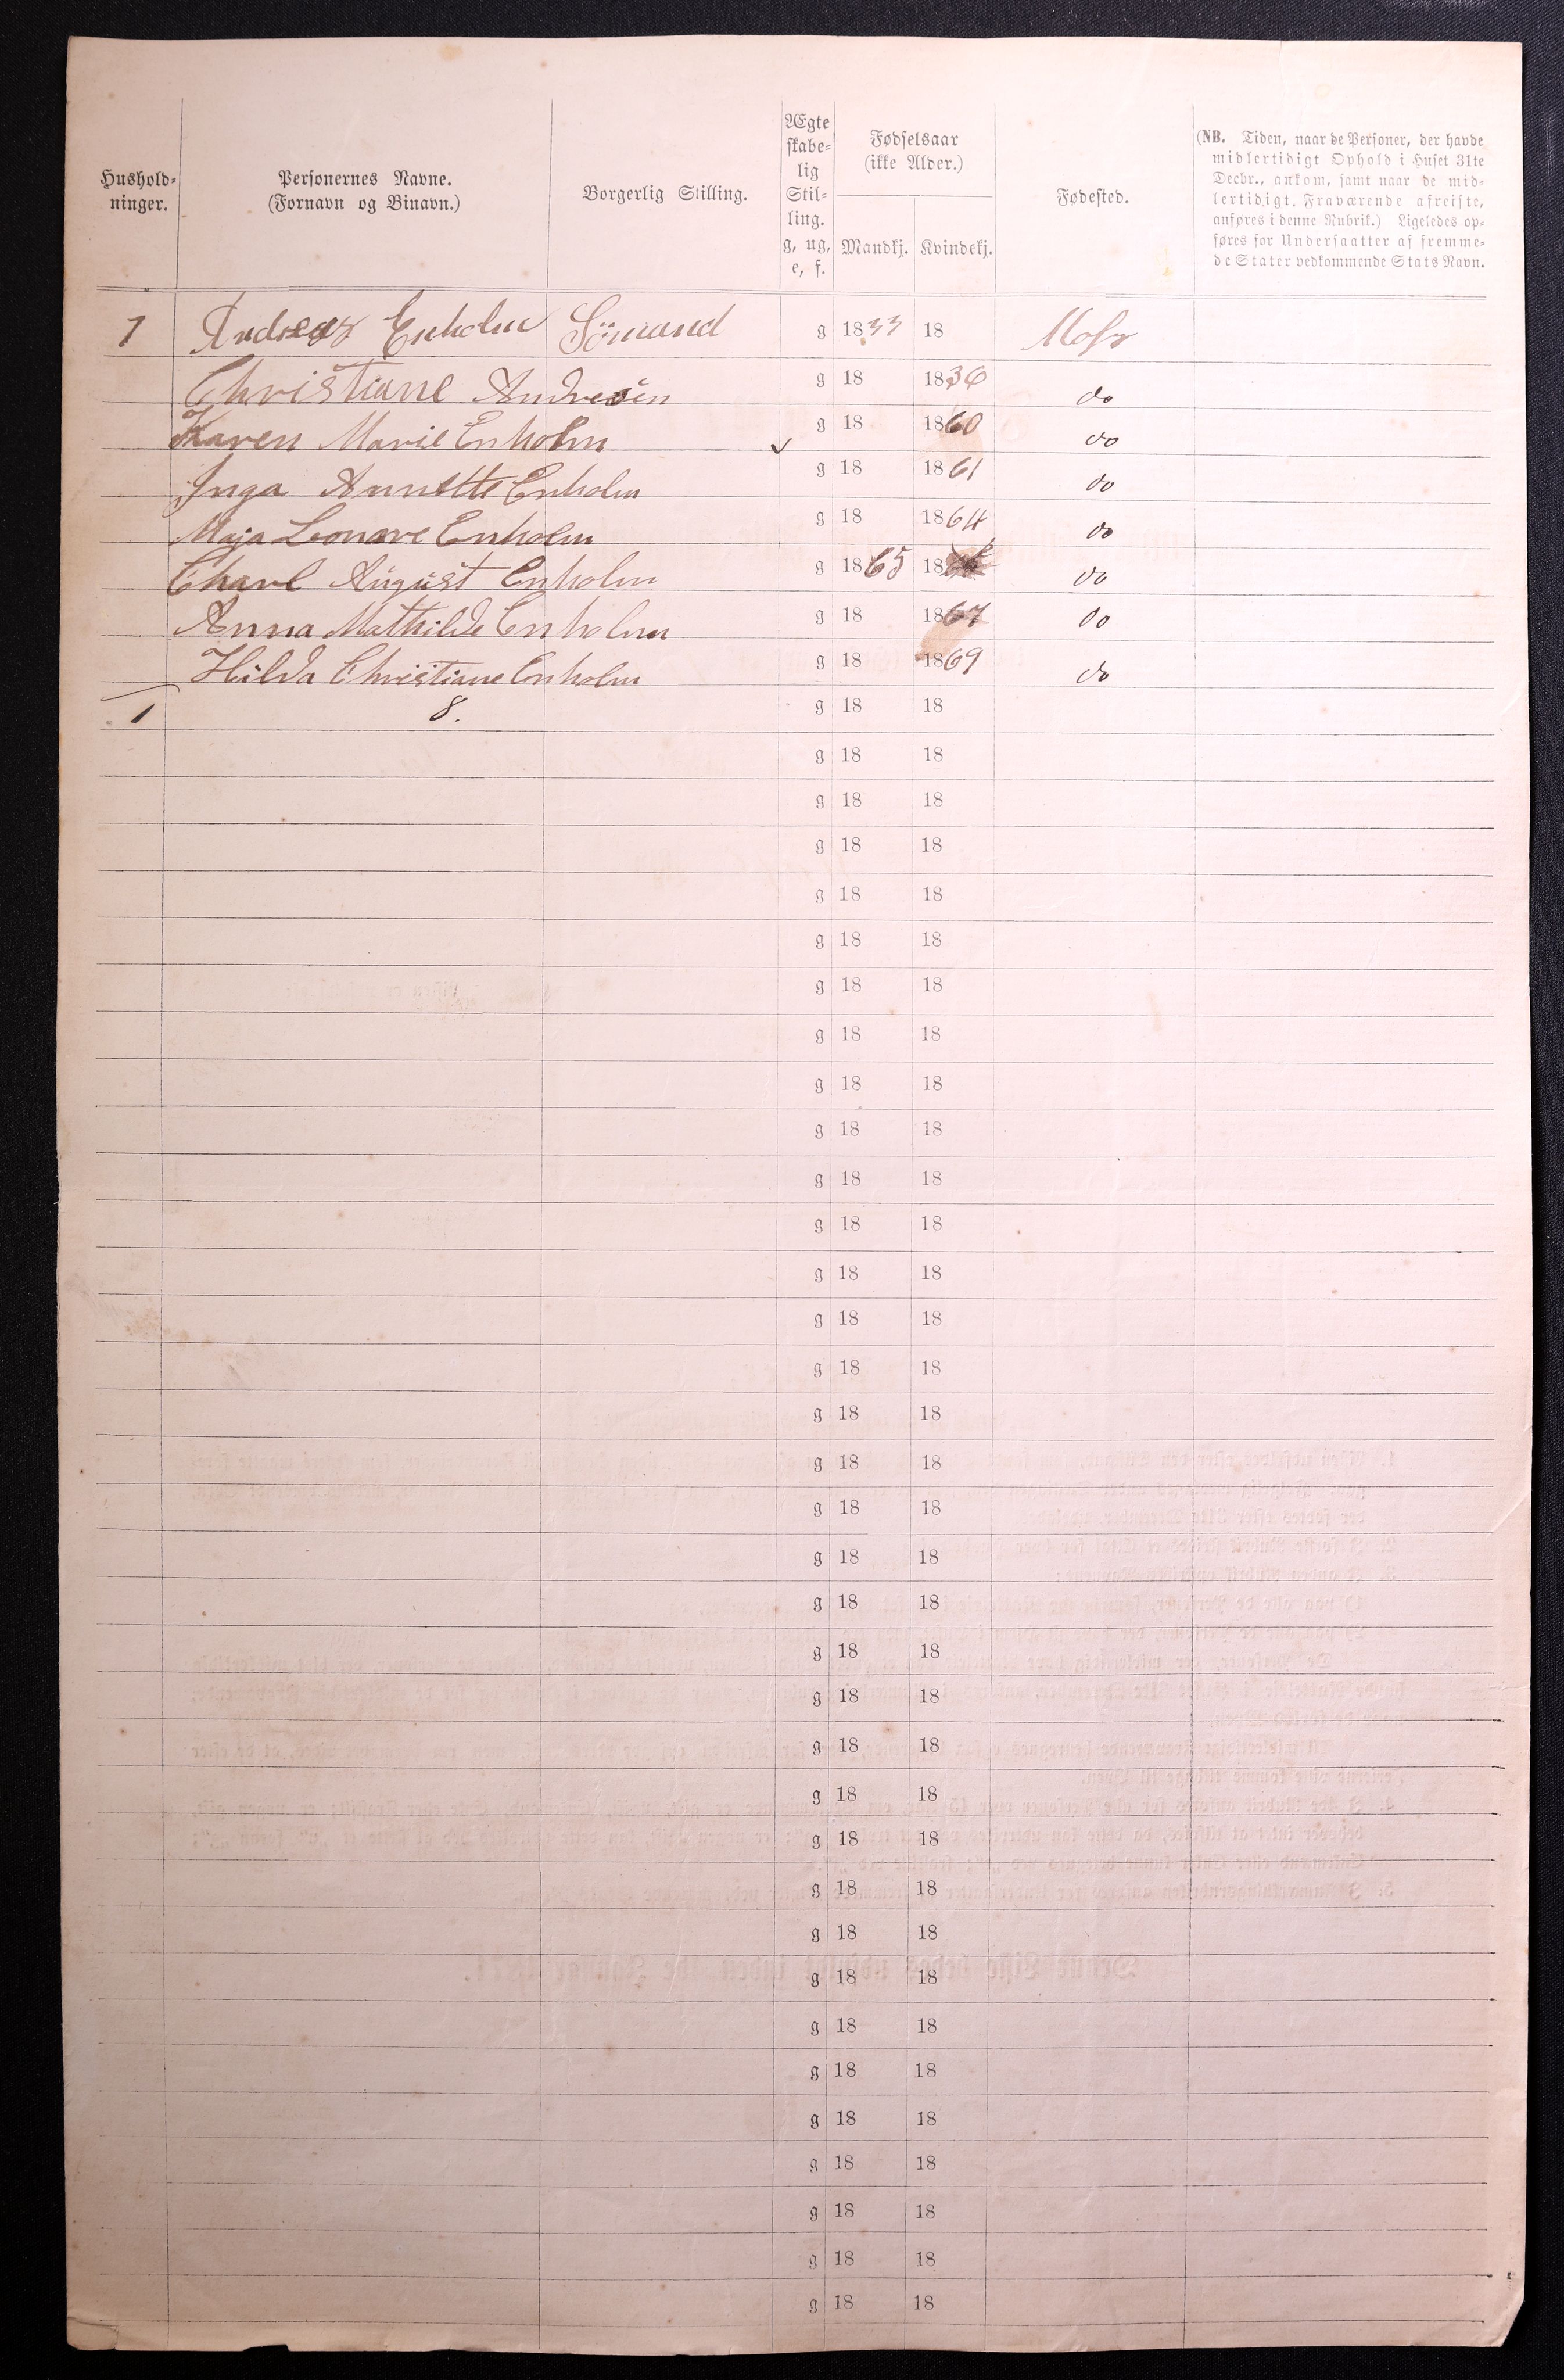 Hushold-
ninger.
Personernes Navne.
(Fornavn og Binavn.)
Borgerlig Stilling.
Ægte
skabe-
lig
Stil-
ling.
g, ug,
e, f.
Fødselsaar
(ikke Alder.)
Mandkj. Kvindekj.
Fødested.
(NB. Tiden, naar de Personer, der havde
midlertidigt Ophold i Huset 31te
Decbr., ankom, samt naar de mid-
lertidigt Fraværende afreiste,
anføres i denne Rubrik.) Ligeledes op-
føres for Undersaatter af fremme-
de Stater vedkommende Stats Navn.
1 Andreas Enholm Sömand g 1833 18 Moss
Christiane Andresen g 18 1836 do
Karen Marie Enholm g 18 1860 do
Inga Annette Enholm g 18 1861 do
Maja Leonore Enholm g 18 1864 do
Charl August Enholm g 1865 18 do
Anna Mathilde Enholm g 18 1867 do
Hilda Christiane Enholm g 18 1869 do
1 8. g 18 18
g 18 18
g 18 18
g 18 18
g 18 18
g 18 18
g 18 18
g 18 18
g 18 18
g 18 18
g 18 18
g 18 18
g 18 18
g 18 18
g 18 18
g 18 18
g 18 18
g 18 18
g 18 18
g 18 18
g 18 18
g 18 18
g 18 18
g 18 18
g 18 18
g 18 18
g 18 18
g 18 18
g 18 18
g 18 18
g 18 18
g 18 18
g 18 18
g 18 18
g 18 18